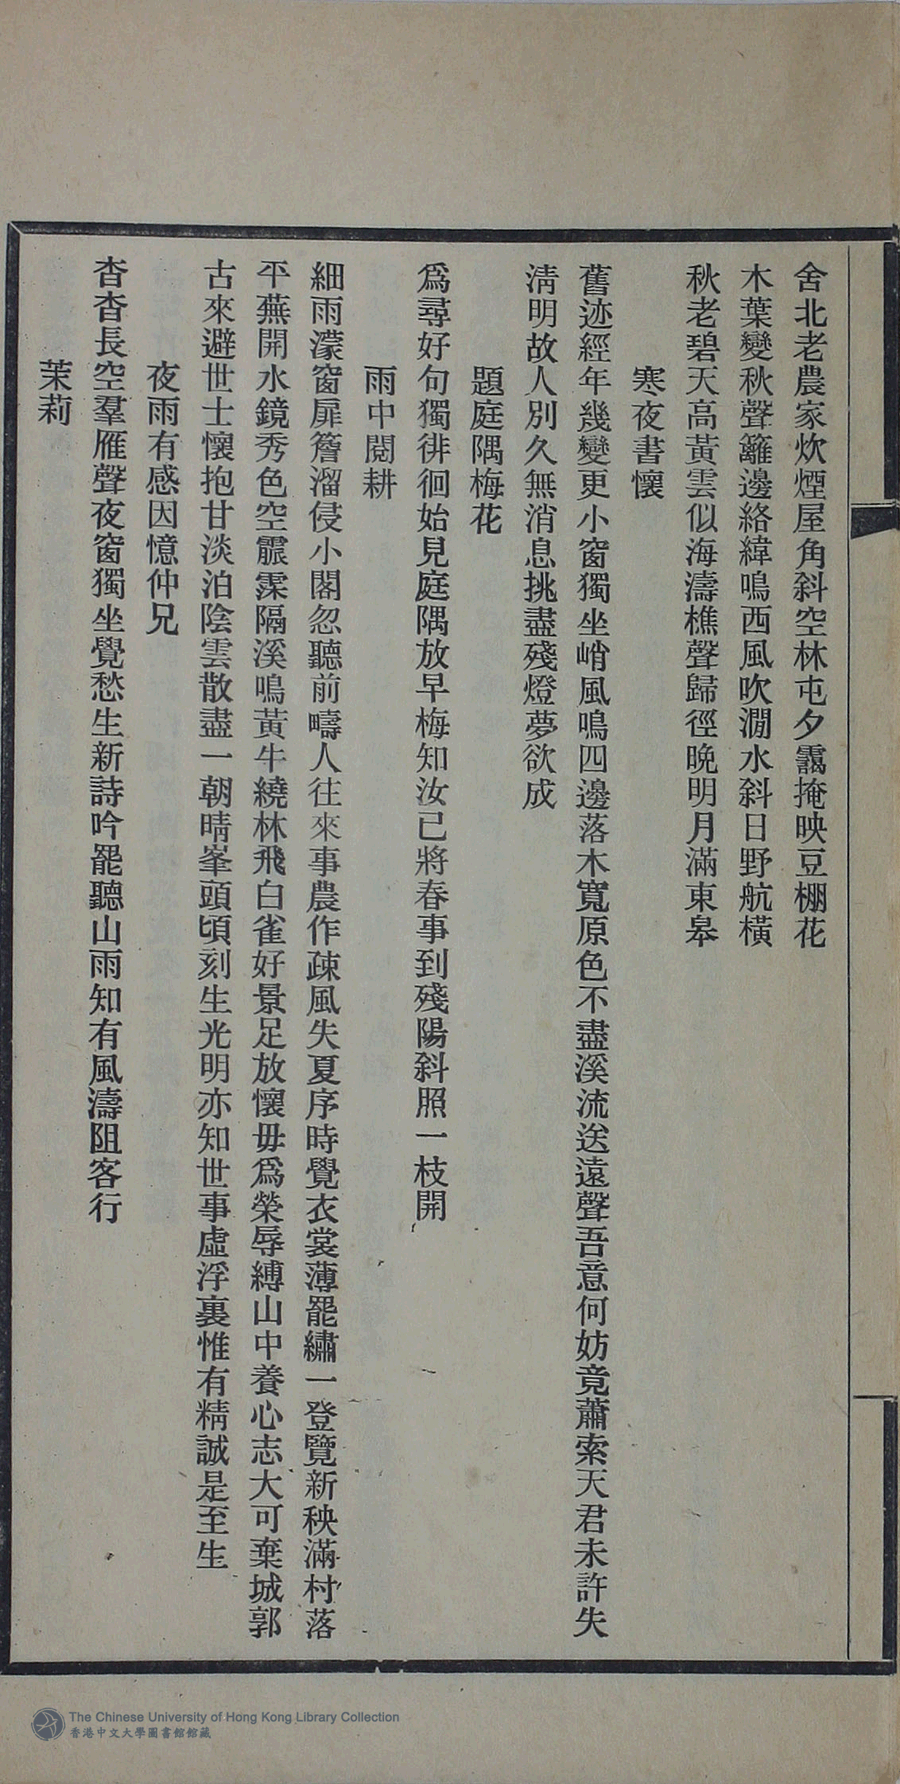 舍北老農家炊煙屋角斜空林屯夕靄掩映豆棚花
木葉變秋聲籬邊絡緯鳴西風吹澗水斜日野航橫
秋老碧天高黃雲似海濤樵聲歸徑晚明月滿東皋
寒夜書懷
舊迹經年幾變更小窗獨坐峭風鳴四邊落木寬原色不盡溪流送遠聲吾意何妨竟蕭索天君未許失
淸明故人別久無消息挑盡殘燈夢欲成
題庭隅梅花
爲尋好句獨徘徊始見庭隅放早梅知汝已將春事到殘陽斜照一枝開
雨中閱耕
細雨濛窗扉簷溜侵小閣忽聽前疇人往來事農作疎風失夏序時覺衣裳薄罷繡一登覽新秧滿村落
平蕪開水鏡秀色空霢霂隔溪鳴黃牛繞林飛白雀好景足放懷毋爲榮辱縛山中養心志大可棄城郭
古來避世士懷抱甘淡泊陰雲散盡一朝晴峯頭頃刻生光明亦知世事虛浮裏惟有精誠是至生
夜雨有感因憶仲兄
杳杳長空羣雁聲夜窗獨坐覺愁生新詩吟罷聽山雨知有風濤阻客行
茉莉
The Chinese University of Hong Kong Library Collection
香港中文大學圖書館館藏